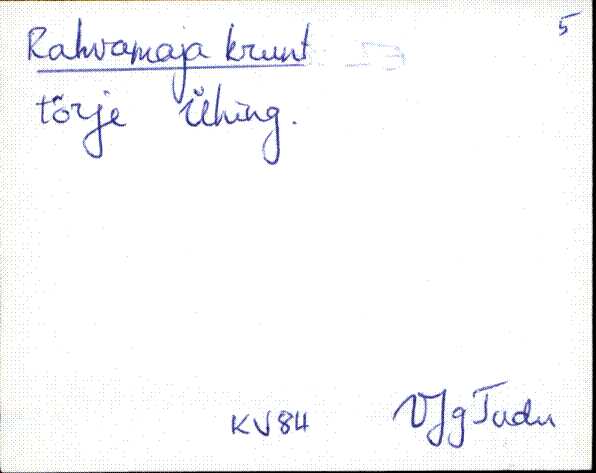 5
Rahvamaja krunt
törje ühing.
KV84
VJg Tudu